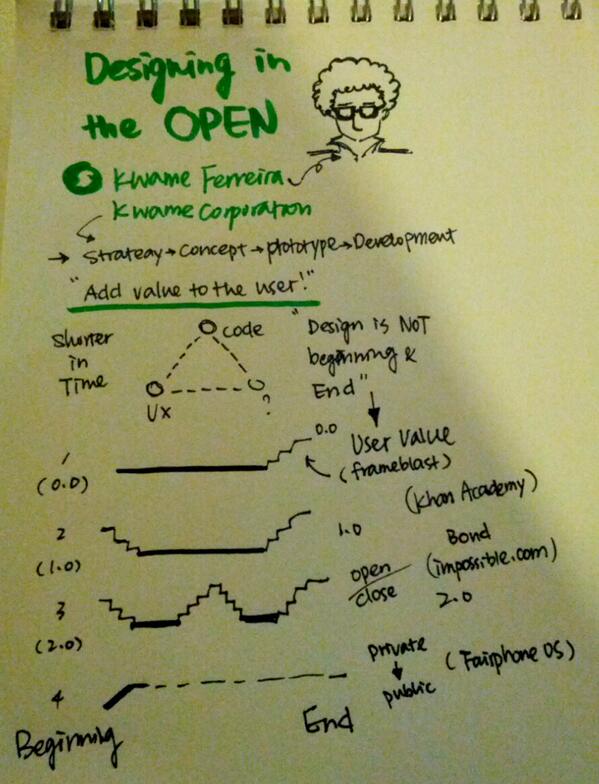 Designing in
the OPEN
S Kwame Ferreira
Kwame Corporation
→ Strategy → Concept → prototype → Development
"Add value to the user!"
Shorter
in
Time
code
UX
?
"Design is NOT
beginning &
End"
1
(0.0)
0.0
User Value
(frameblast)
(Khan Academy)
2
(1.0)
1.0
Bond
(impossible.com)
2.0
open
close
3
(2.0)
private
public
(Fairphone OS)
4
Beginning
End